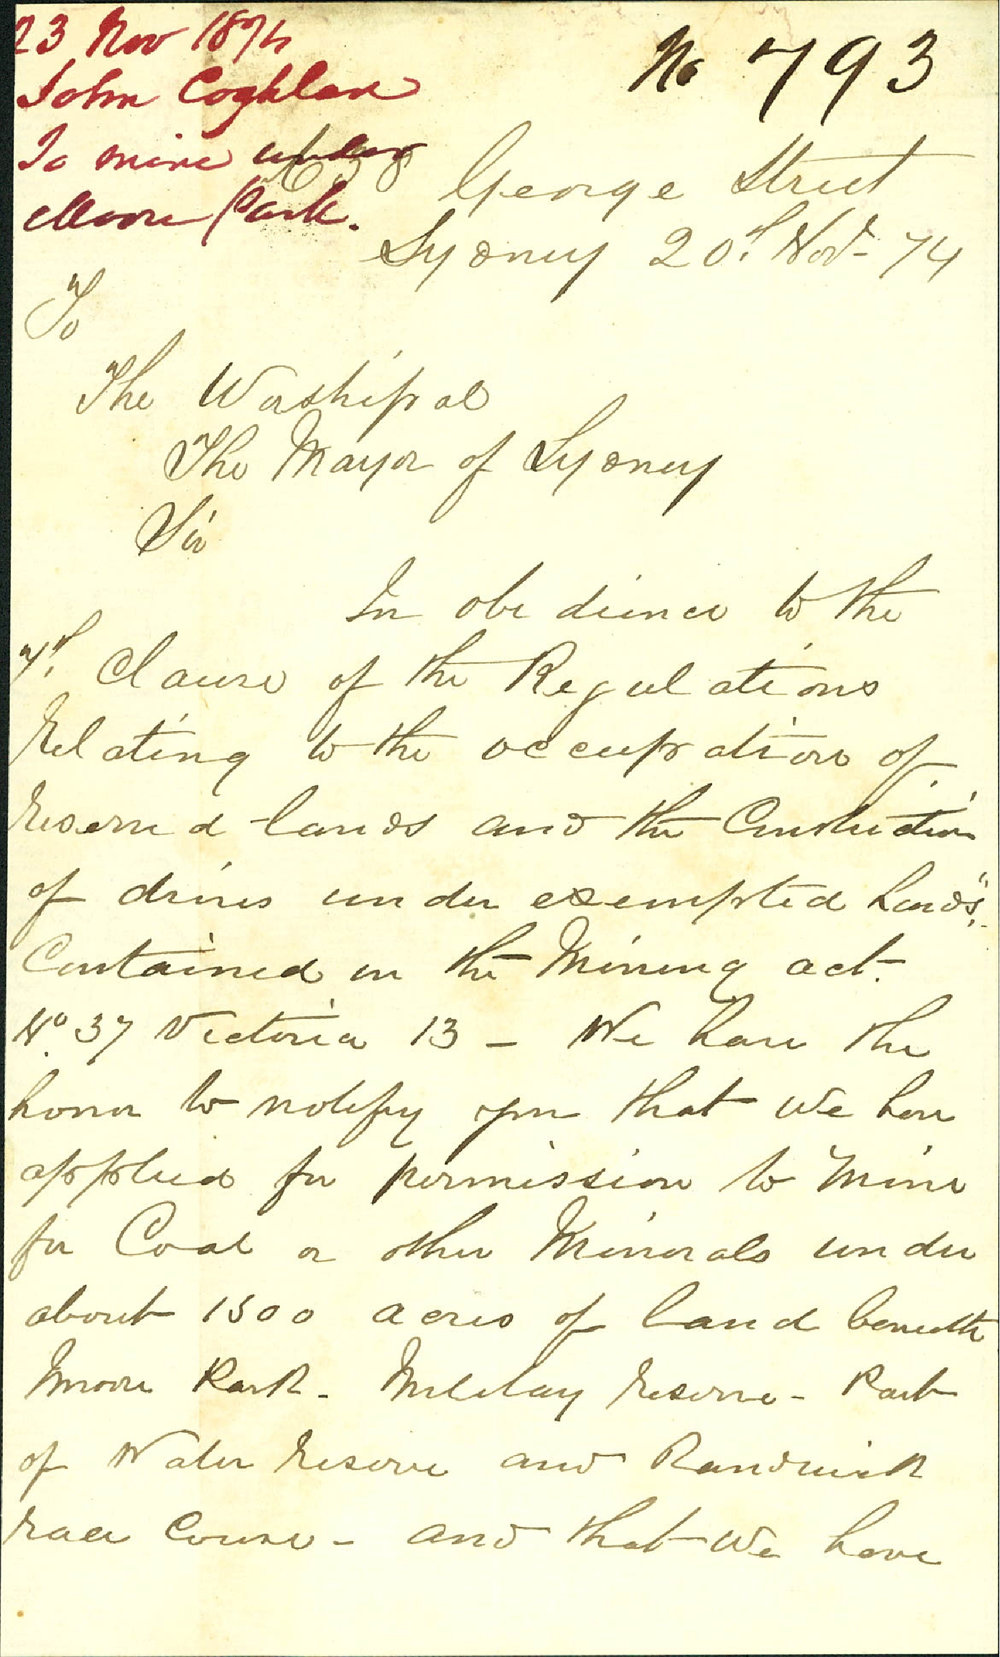 23 Nov 1874
John Coghlan
To mine under
Moore Park.
No 793
638 George Street
Sydney 20th Nov. 74
To
The Worshipal
The Mayor of Sydney
Sir
In obedience to the
7th Clause of the Regulations
relating to the occupation of
reserved lands and the Construction
of drives under exempted lands",
Contained in the Mining act.
No 37 Victoria 13 - We have the
honor to notify you that we have
applied for permission to mine
for Coal or other Minerals under
about 1500 acres of land beneath
Moore Park - Military reserve - Part
of Water reserve and Randwick
race course - and that we have